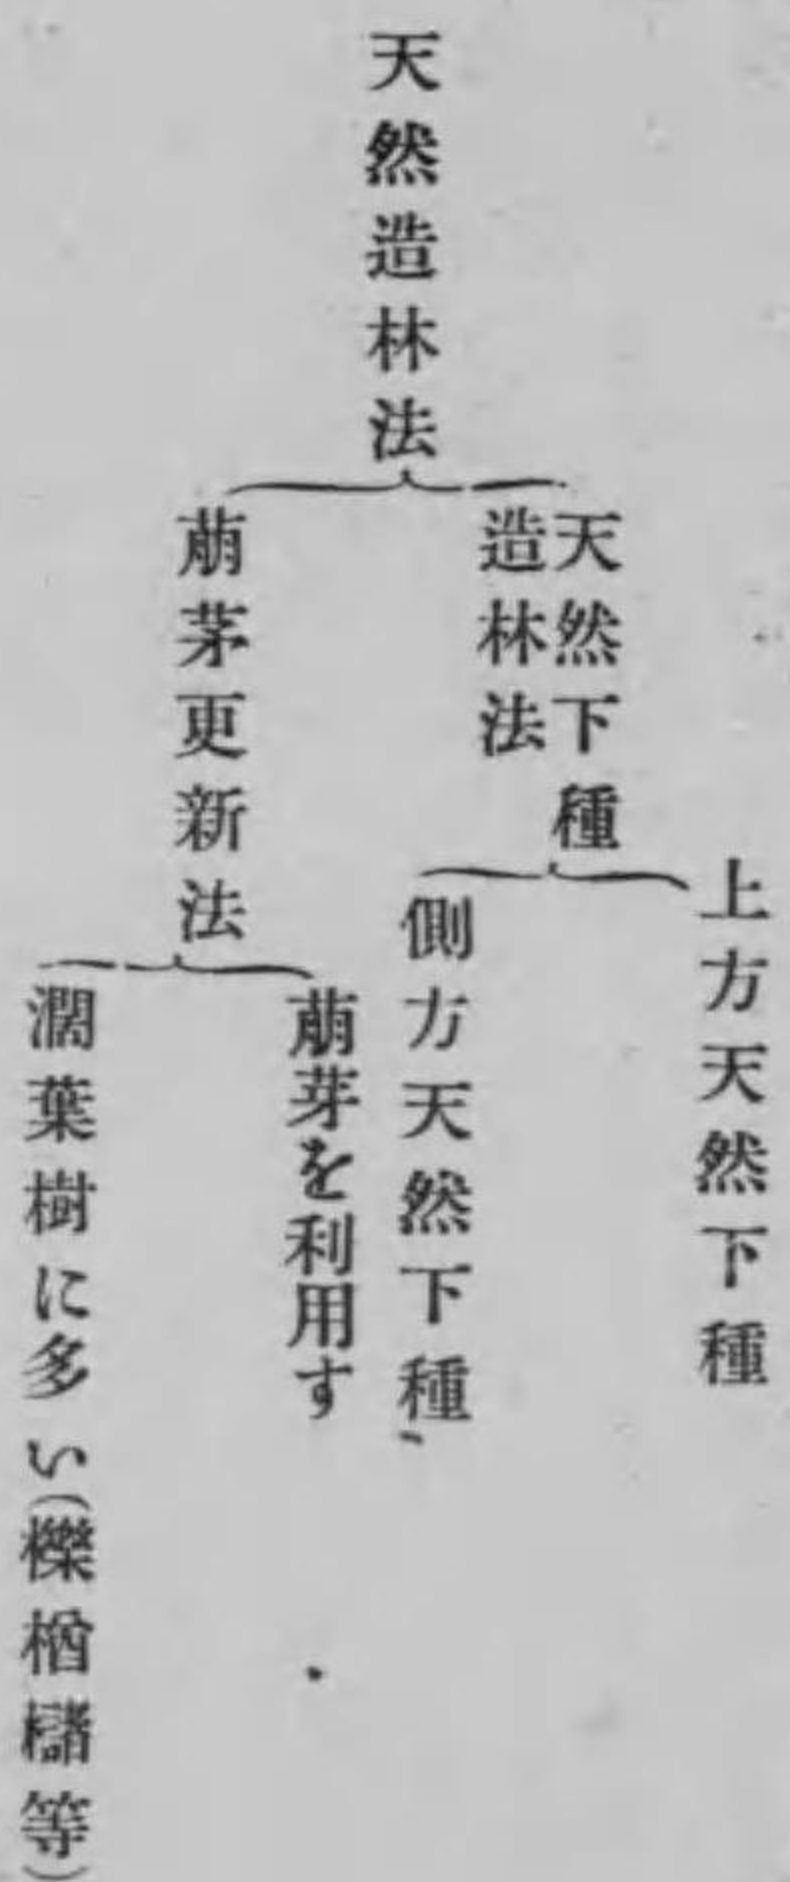 天然造林法
天然下種
造林法
上方天然下種
側方天然下種
萠茅更新法
萠芽を利用す
濶葉樹に多い(櫟楢櫧等)